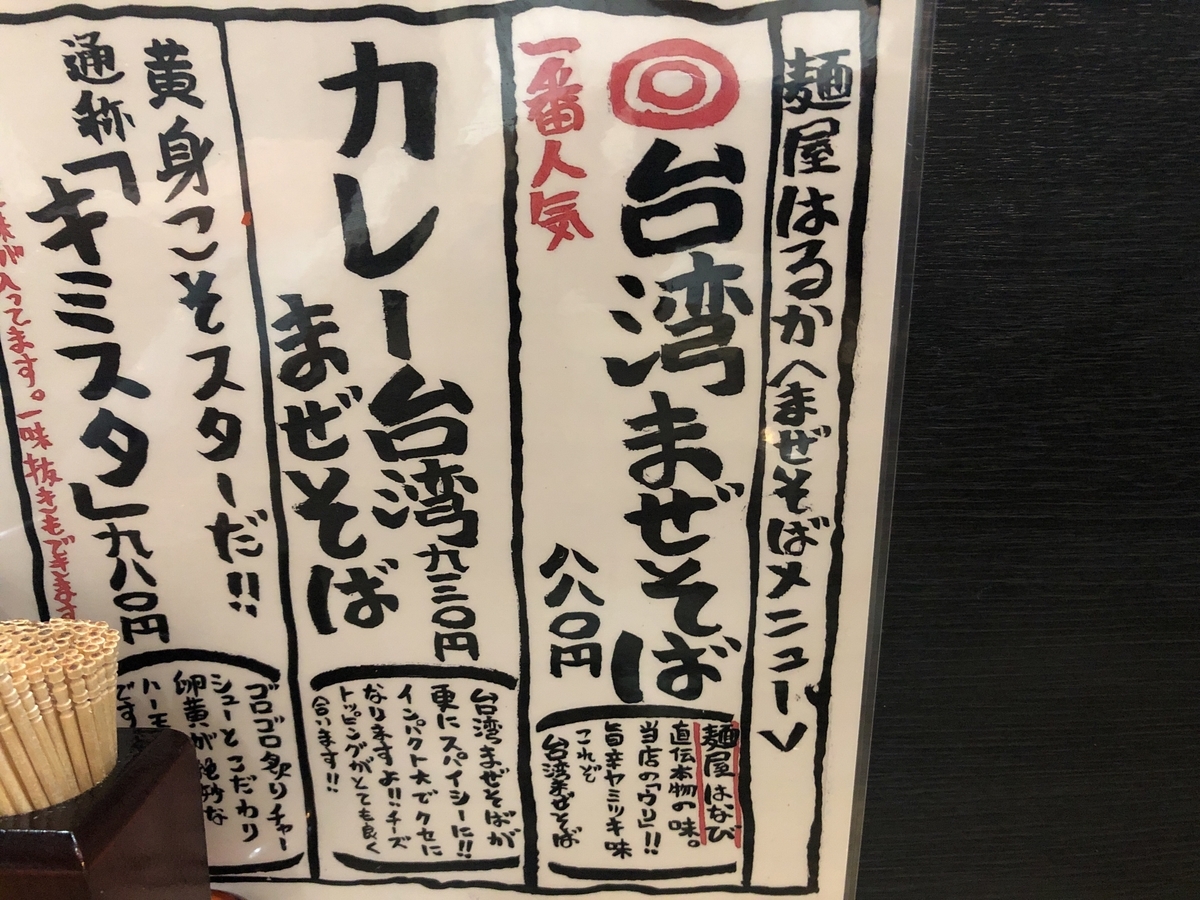 麺屋はるか〈まぜそばメニュー〉
◎台湾まぜそば
一番人気
八八〇円
麺屋はなび
直伝本物の味。
当店の「ウリ」!!
旨辛ヤミツキ味
これぞ
台湾まぜそば
カレー台湾
まぜそば
九三〇円
台湾まぜそばが
更にスパイシーに!!
インパクト大でクセに
なりますよ!!チーズ
トッピングがとても良く
合います!!
黄身こそスターだ!!
通称「キミスタ」九八〇円
ゴロゴロ炙りチャー
シューとこだわり
卵黄が絶妙な
ハーモ
です
味が入ってます。一味抜きもできます